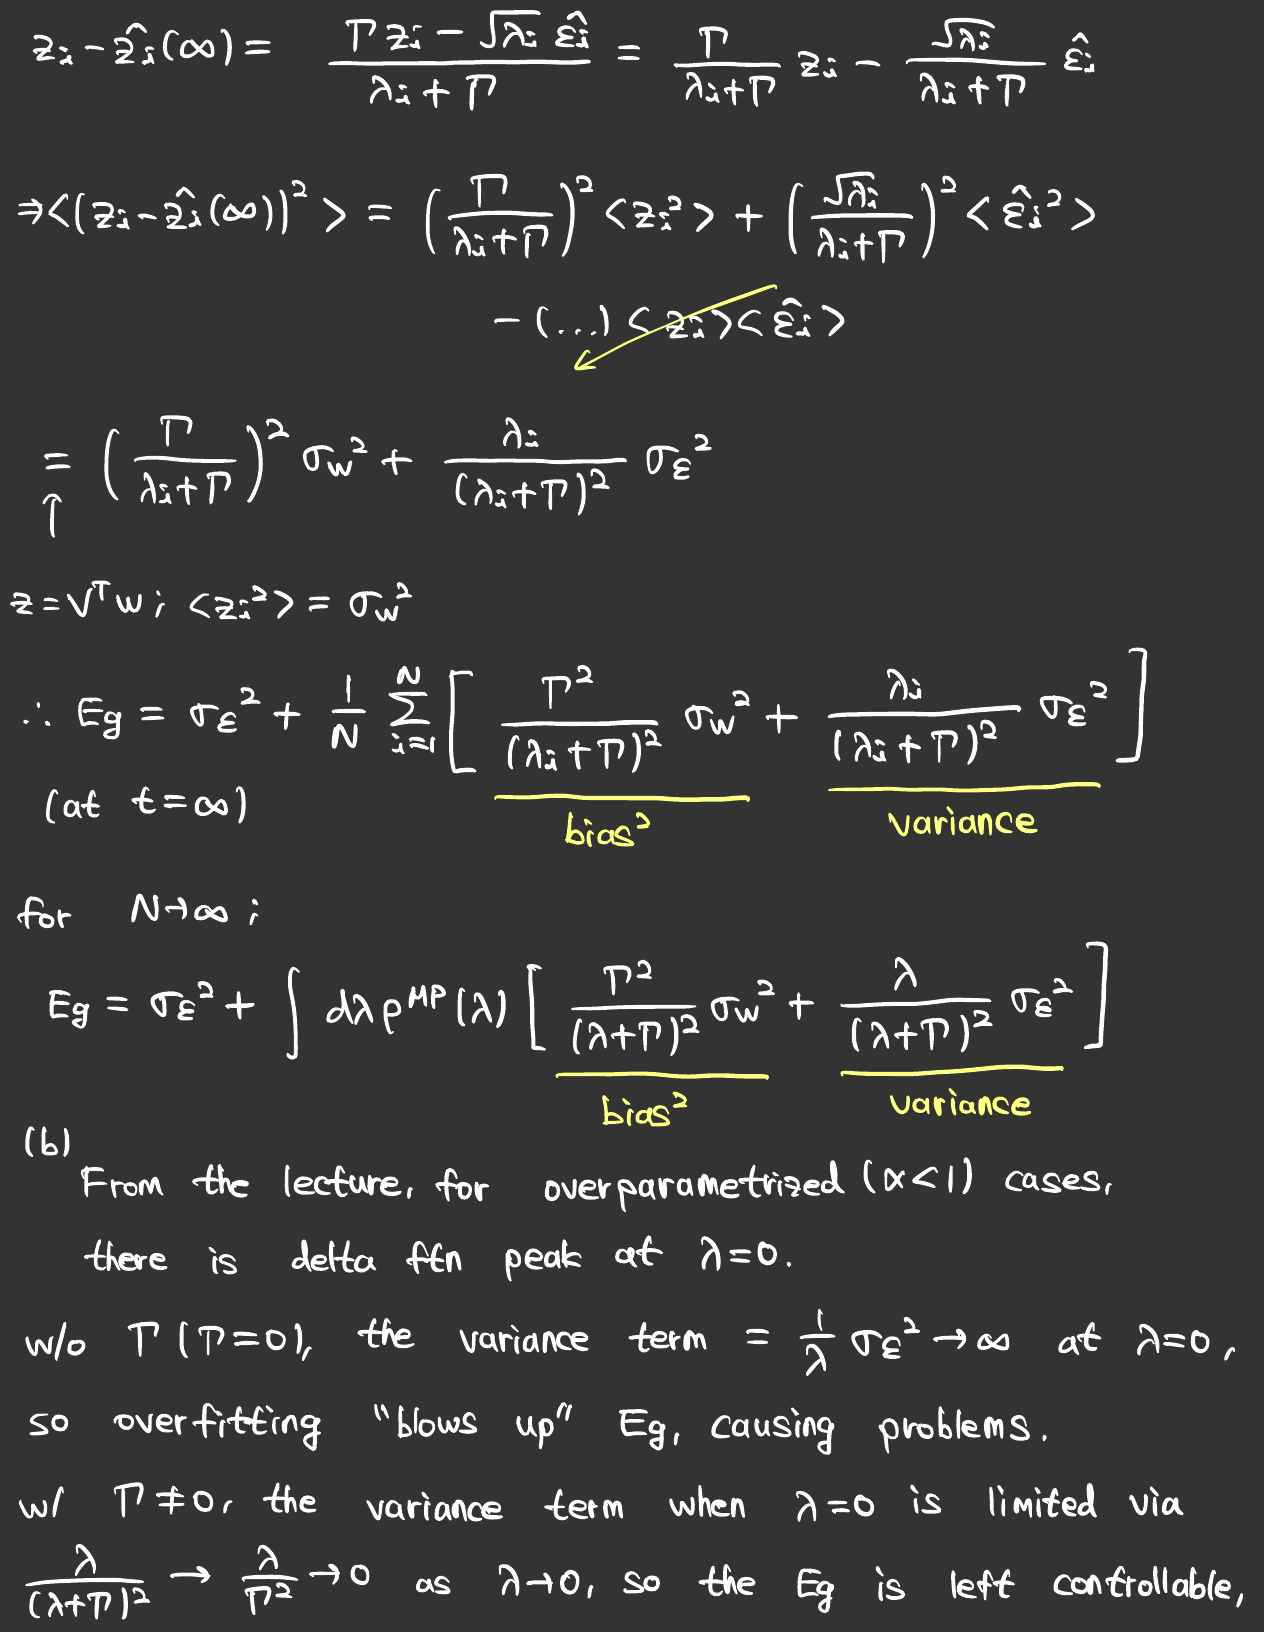 z_i - ẑ_i(∞) = (Γ z_i - √λ_i ε̂_i)/(λ_i + Γ) = Γ/(λ_i + Γ) z_i - √λ_i/(λ_i + Γ) ε̂_i
⇒ <(z_i - ẑ_i(∞))²> = (Γ/(λ_i + Γ))² <z_i²> + (√λ_i/(λ_i + Γ))² <ε̂_i²>
- (...) <z_i><ε̂_i>
= (Γ/(λ_i + Γ))² σ_w² + λ_i/(λ_i + Γ)² σ_ε²
↑
z = Vᵀw ; <z_i²> = σ_w²
∴ Eg = σ_ε² + 1/N Σ_{i=1}^{N} [ Γ²/(λ_i + Γ)² σ_w² + λ_i/(λ_i + Γ)² σ_ε² ]
(at t = ∞)
bias² variance
for N → ∞ ;
Eg = σ_ε² + ∫ dλ ρ^{MP}(λ) [ Γ²/(λ + Γ)² σ_w² + λ/(λ + Γ)² σ_ε² ]
bias² variance
(b)
From the lecture, for overparametrized (α < 1) cases,
there is delta ftn peak at λ = 0.
w/o Γ (Γ = 0), the variance term = 1/λ σ_ε² → ∞ at λ = 0,
so overfitting "blows up" Eg, causing problems.
w/ Γ ≠ 0, the variance term when λ = 0 is limited via
λ/(λ + Γ)² → λ/Γ² → 0 as λ → 0, so the Eg is left controllable,